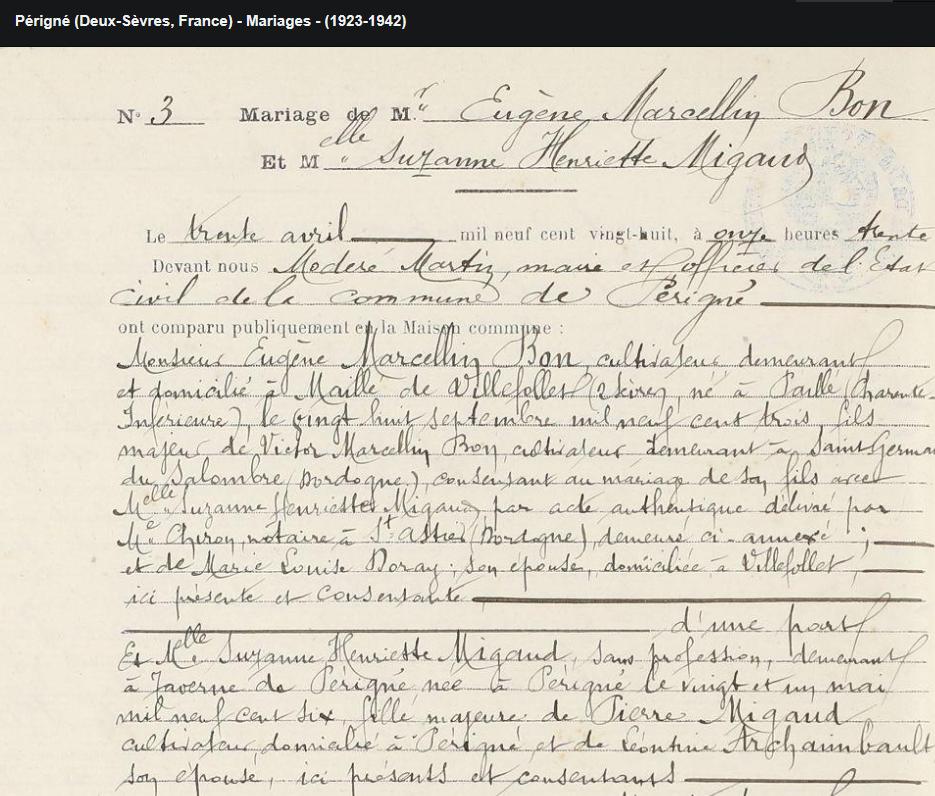 Périgné (Deux-Sèvres, France) - Mariages - (1923-1942)
N° 3 Mariage de M.r Eugène Marcellin Bon
Et Melle Suzanne Henriette Migaud
Le trente avril mil neuf cent vingt-huit, à onze heures trente
Devant nous Moderé Martin, maire et officier de l'Etat
Civil de la commune de Périgné
ont comparu publiquement en la Maison commune :
Monsieur Eugène Marcellin Bon, cultivateur demeurant
et domicilié à Maillé de Villefollet (2 Sèvres), né à Paillé (Charente-
Inférieure), le vingt huit septembre mil neuf cent trois, fils
majeur de Victor Marcellin Bon, cultivateur demeurant à Saint Germa
du Salombre (Dordogne), consentant au mariage de son fils avec
Melle Suzanne Henriette Migaud, par acte authentique délivré par
Me Chiron, notaire à St Astier (Dordogne), demeuré ci-annexé ;
et de Marie Louise Doray, son épouse, domiciliée à Villefollet,
ici présente et consentante
d'une part
Et Melle Suzanne Henriette Migaud, sans profession, demeurant
à Javerne de Périgné, née à Périgné le vingt et un mai
mil neuf cent six, fille majeure de Pierre Migaud
cultivateur domicilié à Périgné et de Léontine Archaimbault
son épouse, ici présents et consentants